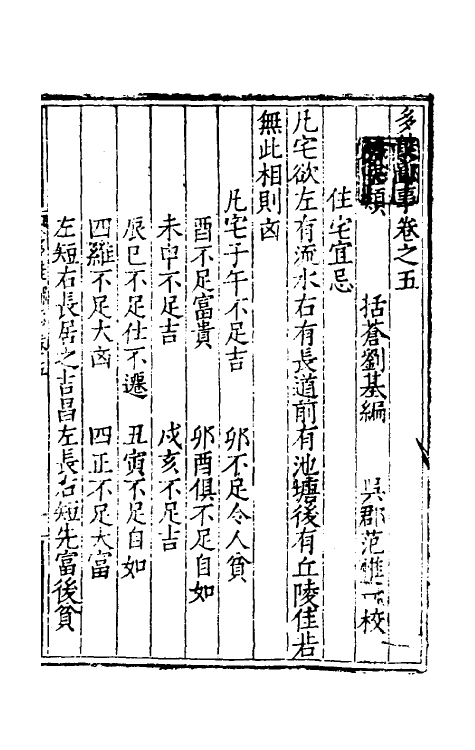 多能鄙事卷之五
類 括蒼劉基編 吳郡范惟一校
住宅宜忌
凡宅欲左有流水右有長道前有池塘後有丘陵佳若
無此相則凶
凡宅子午不足吉 卯不足令人貧
酉不足富貴 卯酉俱不足自如
未申不足吉 戌亥不足吉
辰巳不足仕不遷 丑寅不足自如
四維不足大凶 四正不足大富
左短右長居之吉昌左長右短先富後貧